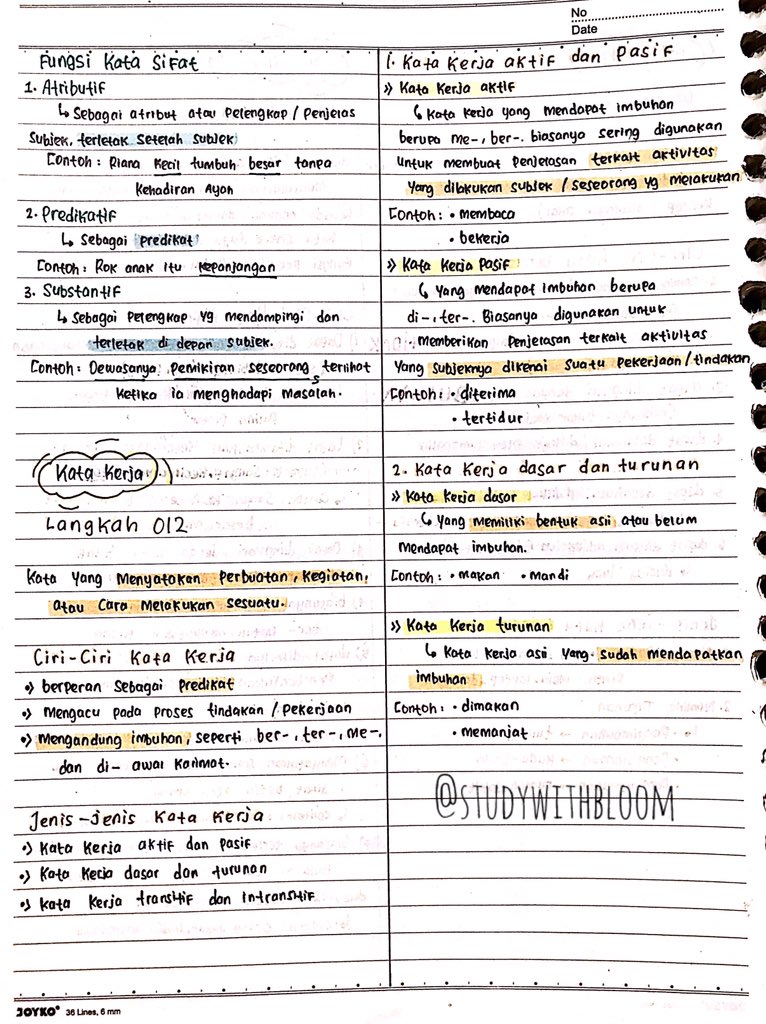 No
Date
Fungsi Kata Sifat
1. Atributif
↳ Sebagai atribut atau pelengkap / penjelas
Subjek, terletak setelah subjek
Contoh : Riana kecil tumbuh besar tanpa
Kehadiran Ayah
2. Predikatif
↳ Sebagai predikat
Contoh : Rok anak itu kepanjangan
3. Substantif
↳ Sebagai pelengkap yg mendampingi dan
terletak di depan subjek.
Contoh : Dewasanya pemikiran seseorang terlihat
s
ketika ia menghadapi masalah.
Kata Kerja
Langkah 012
Kata yang Menyatakan Perbuatan, Kegiatan,
atau Cara Melakukan sesuatu.
Ciri-Ciri Kata Kerja
•> berperan sebagai predikat
•> Mengacu pada proses tindakan / pekerjaan
•> Mengandung imbuhan, seperti ber-, ter-, me-,
dan di- awal kalimat.
Jenis-Jenis Kata Kerja
•> Kata Kerja aktif dan pasif
•> Kata Kerja dasar dan turunan
•> Kata Kerja transitif dan intransitif
1. Kata Kerja aktif dan Pasif
>> Kata Kerja aktif
↳ Kata Kerja yang mendapat imbuhan
berupa me-, ber-. biasanya sering digunakan
untuk membuat penjelasan terkait aktivitas
yang dilakukan subjek / seseorang yg melakukan
Contoh : • membaca
• bekerja
>> Kata Kerja Pasif
↳ Yang mendapat imbuhan berupa
di-, ter-. Biasanya digunakan untuk
Memberikan Penjelasan terkait aktivitas
Yang subjeknya dikenai suatu pekerjaan / tindakan
Contoh : • diterima
• tertidur
2. Kata Kerja dasar dan turunan
>> Kata Kerja dasar
↳ Yang memiliki bentuk asli atau belum
Mendapat imbuhan.
Contoh : • makan • mandi
>> Kata Kerja turunan
↳ Kata Kerja asli yang sudah mendapatkan
imbuhan
Contoh : • dimakan
• memanjat
@STUDYWITHBLOOM
JOYKO® 36 Lines, 6 mm